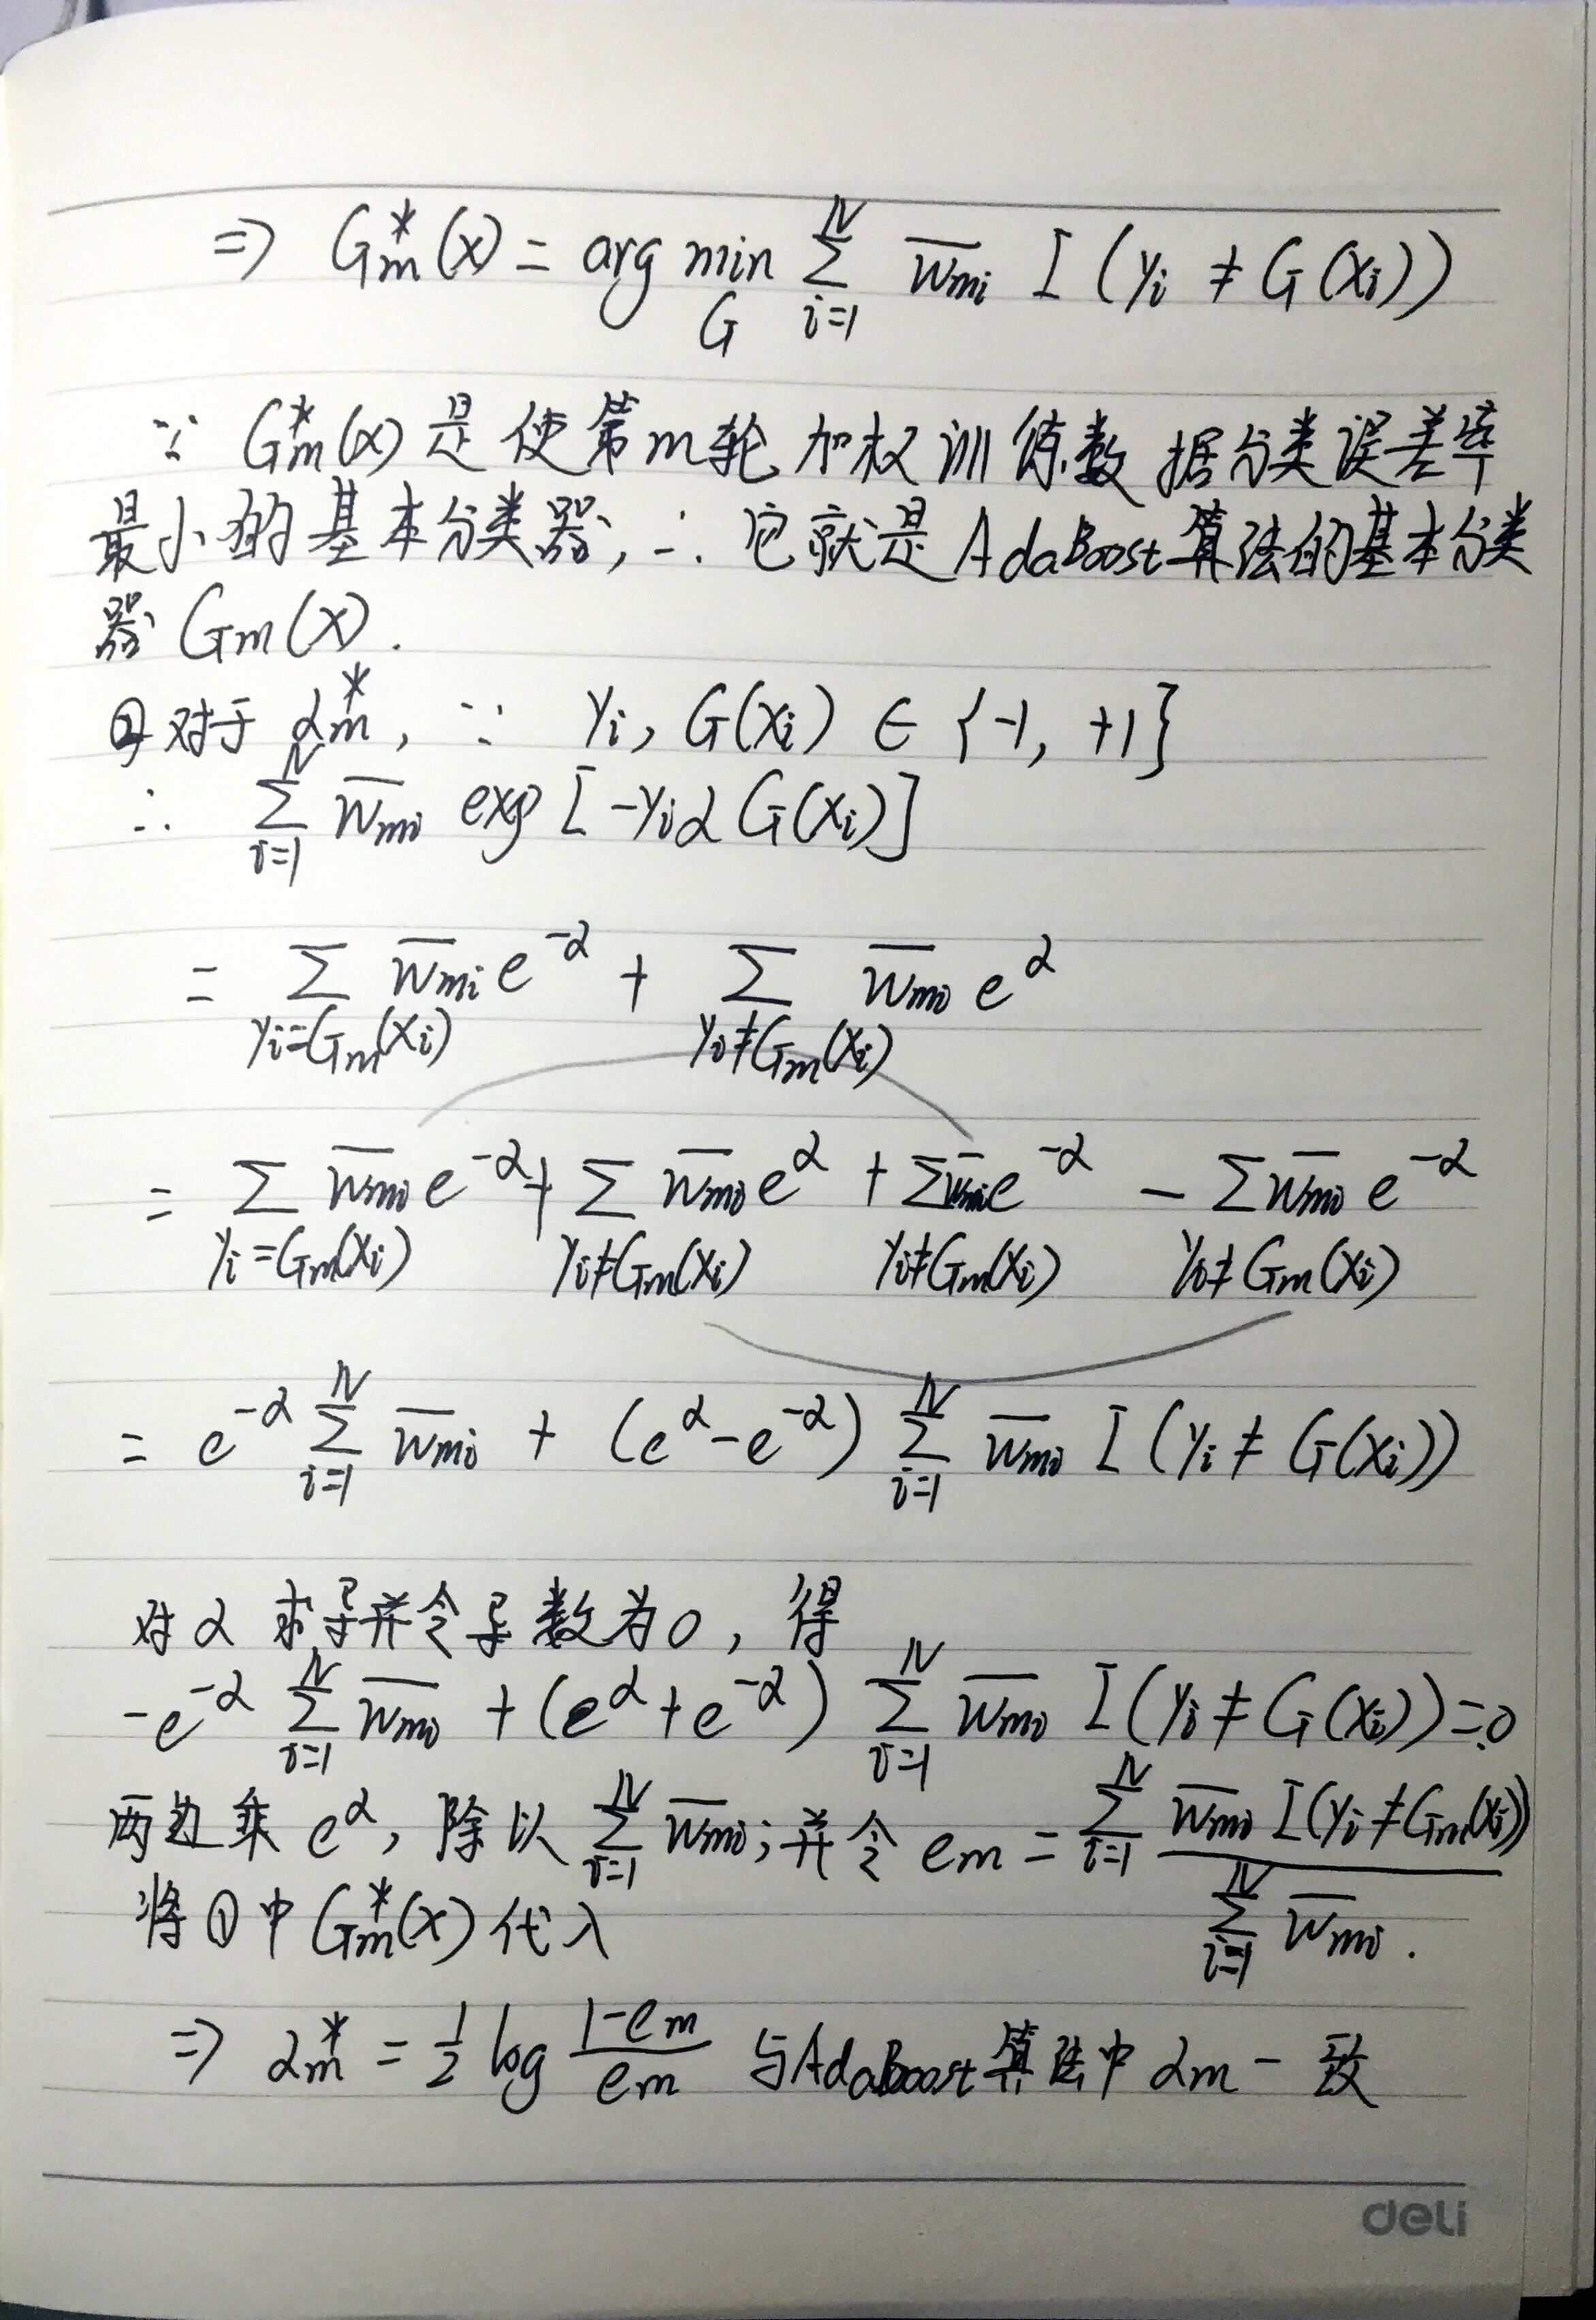 ⇒ G*m(x) = arg min_G Σ_{i=1}^{N} w̄mi I(yi ≠ G(xi))
∵ G*m(x) 是使第m轮加权训练数据分类误差率
最小的基本分类器, ∴ 它就是AdaBoost算法的基本分类
器 Gm(x).
② 对于 α*m, ∵ yi, G(xi) ∈ {-1, +1}
∴ Σ_{i=1}^{N} w̄mi exp[-yiαG(xi)]
= Σ_{yi=Gm(xi)} w̄mi e^{-α} + Σ_{yi≠Gm(xi)} w̄mi e^{α}
= Σ_{yi=Gm(xi)} w̄mi e^{-α} + Σ_{yi≠Gm(xi)} w̄mi e^{α} + Σ_{yi≠Gm(xi)} w̄mi e^{-α} - Σ_{yi≠Gm(xi)} w̄mi e^{-α}
= e^{-α} Σ_{i=1}^{N} w̄mi + (e^{α}-e^{-α}) Σ_{i=1}^{N} w̄mi I(yi ≠ G(xi))
对α求导并令导数为0, 得
-e^{-α} Σ_{i=1}^{N} w̄mi + (e^{α}+e^{-α}) Σ_{i=1}^{N} w̄mi I(yi ≠ G(xi))=0
两边乘 e^{α}, 除以 Σ_{i=1}^{N} w̄mi; 并令 em = Σ_{i=1}^{N} w̄mi I(yi≠Gm(xi)) / Σ_{i=1}^{N} w̄mi.
将①中 G*m(x) 代入
⇒ α*m = 1/2 log (1-em)/em 与AdaBoost算法中 αm 一致
deli